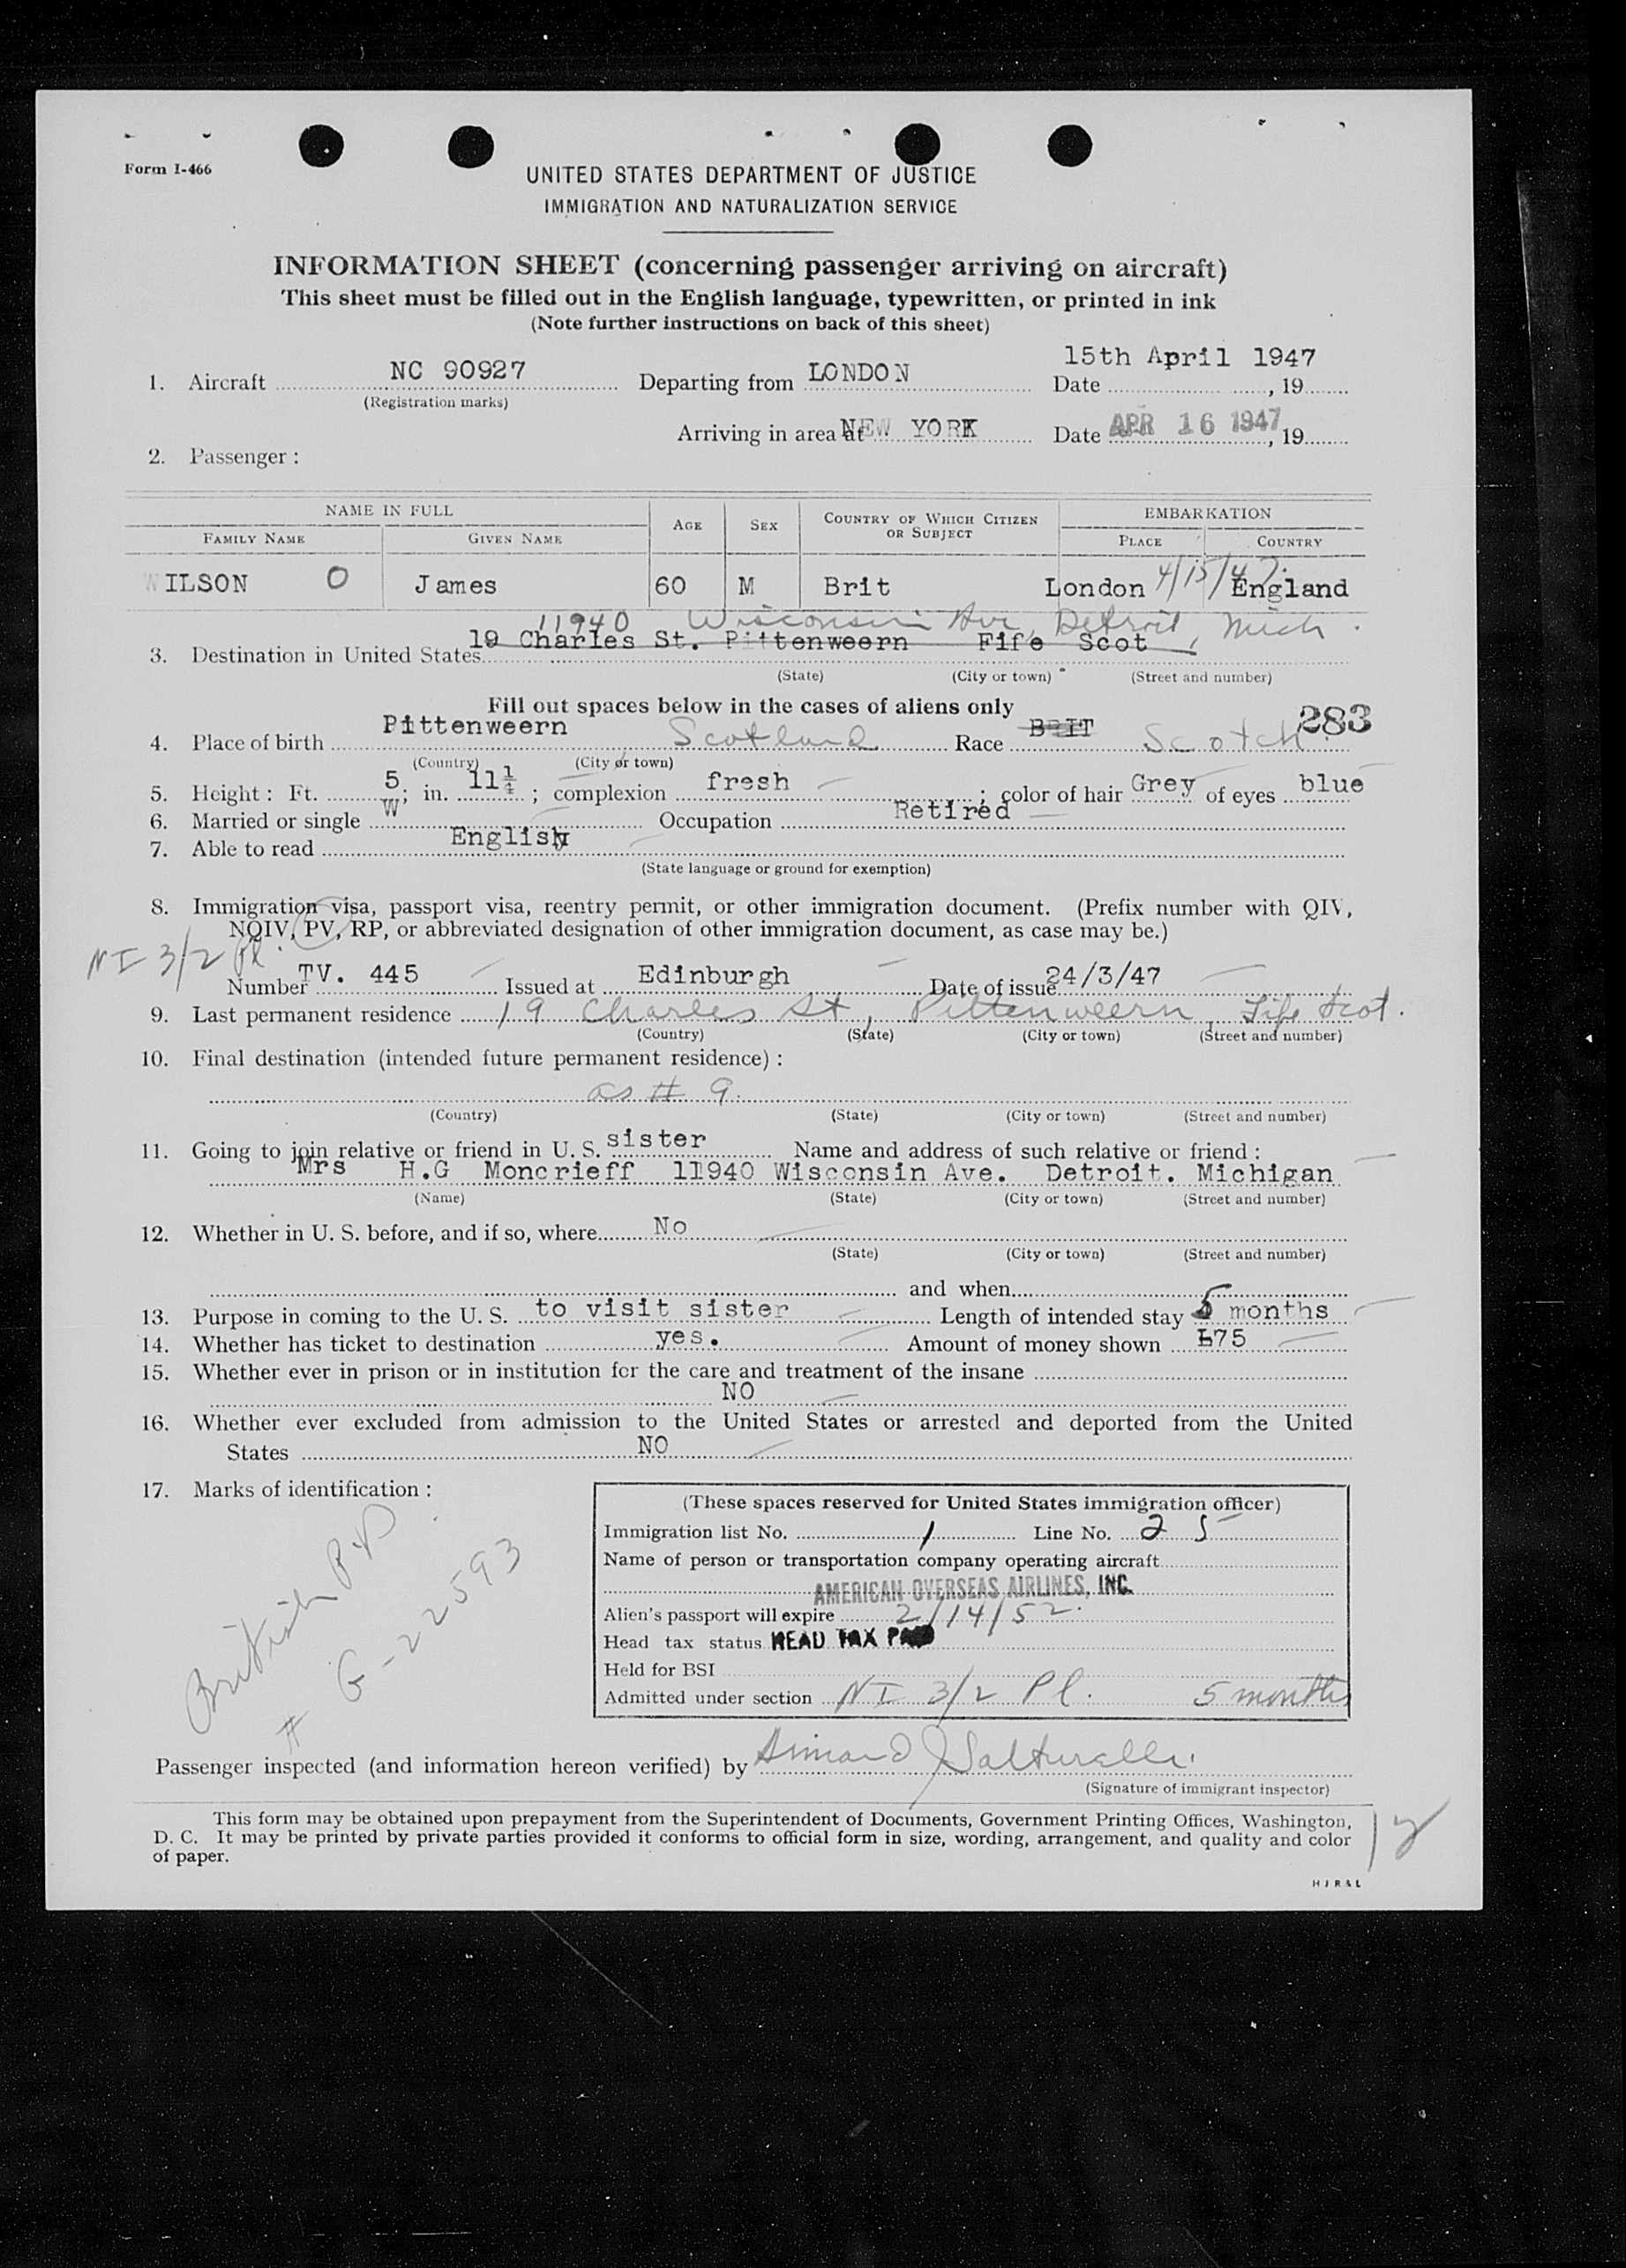 Form I-466
UNITED STATES DEPARTMENT OF JUSTICE
IMMIGRATION AND NATURALIZATION SERVICE
INFORMATION SHEET (concerning passenger arriving on aircraft)
This sheet must be filled out in the English language, typewritten, or printed in ink
(Note further instructions on back of this sheet)
1. Aircraft NC 90927 Departing from LONDON Date 15th April 1947, 19
(Registration marks)
Arriving in area at NEW YORK Date APR 16 1947, 19
2. Passenger:
NAME IN FULL AGE SEX COUNTRY OF WHICH CITIZEN OR SUBJECT EMBARKATION
FAMILY NAME GIVEN NAME PLACE COUNTRY
WILSON O James 60 M Brit London 4/15/47. England
11940 Wisconsin Ave, Detroit, Mich.
3. Destination in United States 19 Charles St. Pittenweern Fife Scot
(State) (City or town) (Street and number)
Fill out spaces below in the cases of aliens only
283
4. Place of birth Pittenweern Scotland Race BRIT Scotch
(Country) (City or town)
5. Height: Ft. 5; in. 11¼; complexion fresh; color of hair Grey of eyes blue
6. Married or single W Occupation Retired
7. Able to read English
(State language or ground for exemption)
8. Immigration visa, passport visa, reentry permit, or other immigration document. (Prefix number with QIV,
NQIV, PV, RP, or abbreviated designation of other immigration document, as case may be.)
NI 3/2 Pl.
Number TV. 445 Issued at Edinburgh Date of issue 24/3/47
9. Last permanent residence 19 Charles St, Pittenweern, Fife Scot.
(Country) (State) (City or town) (Street and number)
10. Final destination (intended future permanent residence):
as # 9.
(Country) (State) (City or town) (Street and number)
11. Going to join relative or friend in U. S. sister Name and address of such relative or friend:
Mrs H.G Moncrieff 11940 Wisconsin Ave. Detroit. Michigan
(Name) (State) (City or town) (Street and number)
12. Whether in U. S. before, and if so, where No
(State) (City or town) (Street and number)
and when
13. Purpose in coming to the U. S. to visit sister Length of intended stay 5 months
14. Whether has ticket to destination yes. Amount of money shown £75
15. Whether ever in prison or in institution for the care and treatment of the insane
NO
16. Whether ever excluded from admission to the United States or arrested and deported from the United
States NO
17. Marks of identification:
British P.P.
# G-22593
(These spaces reserved for United States immigration officer)
Immigration list No. 1 Line No. 25
Name of person or transportation company operating aircraft
AMERICAN OVERSEAS AIRLINES, INC.
Alien's passport will expire 2/14/52.
Head tax status HEAD TAX PAID
Held for BSI
Admitted under section NI 3/2 Pl. 5 months
Passenger inspected (and information hereon verified) by
(Signature of immigrant inspector)
This form may be obtained upon prepayment from the Superintendent of Documents, Government Printing Offices, Washington,
D. C. It may be printed by private parties provided it conforms to official form in size, wording, arrangement, and quality and color
of paper.
HJR&L